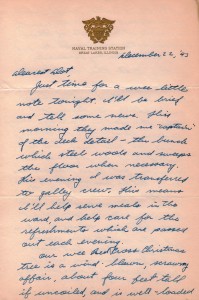 NAVAL TRAINING STATION
GREAT LAKES, ILLINOIS
December 22, '43
Dearest Dot,
Just time for a wee little
note tonight. I'll be brief
and tell some news. This
morning they made me "captain"
of the deck detail - the bunch
which steel wools and sweeps
the floor when necessary.
This evening I was transferred
to galley crew, this means
I'll help serve meals in the
ward, and help care for the
refreshments which are passed
out each evening.
Our wee Red Cross Christmas
tree is a wind-blown, scrawny
affair, about four feet tall
if uncoiled, and is well loaded